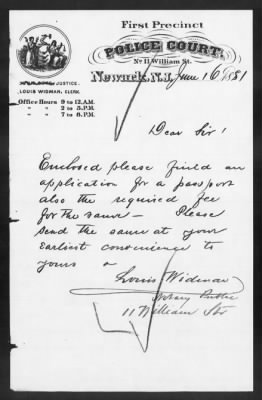 First Precinct
POLICE COURT,
No 11 William St.
Newark, N.J. June 16 1881
JUSTICE.
LOUIS WIDMAN, CLERK.
Office Hours 9 to 12 A.M.
" " 2 to 5 P.M.
" " 7 to 8 P.M.
Dear Sir!
Enclosed please find an
application for a passport
also the required fee
for the same – Please
send the same at your
earliest convenience to
yours
Louis Widman
Notary Public
11 William Str